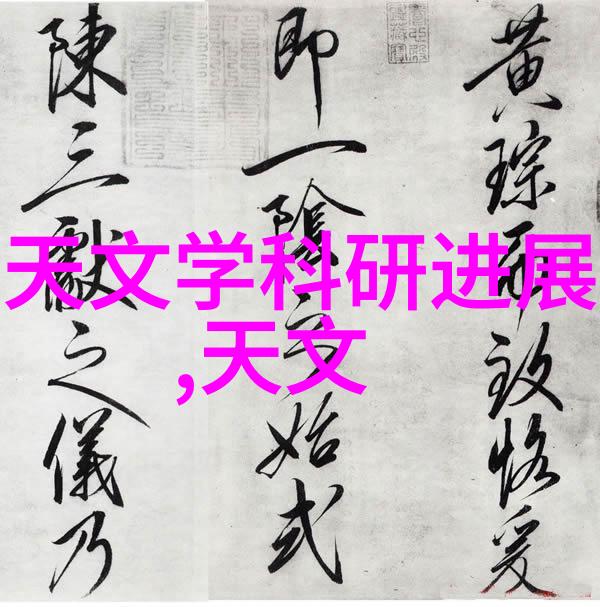 天文学科研进展
,天文
黄琮致恪爰
即一陰之始式
陳三獻之儀乃